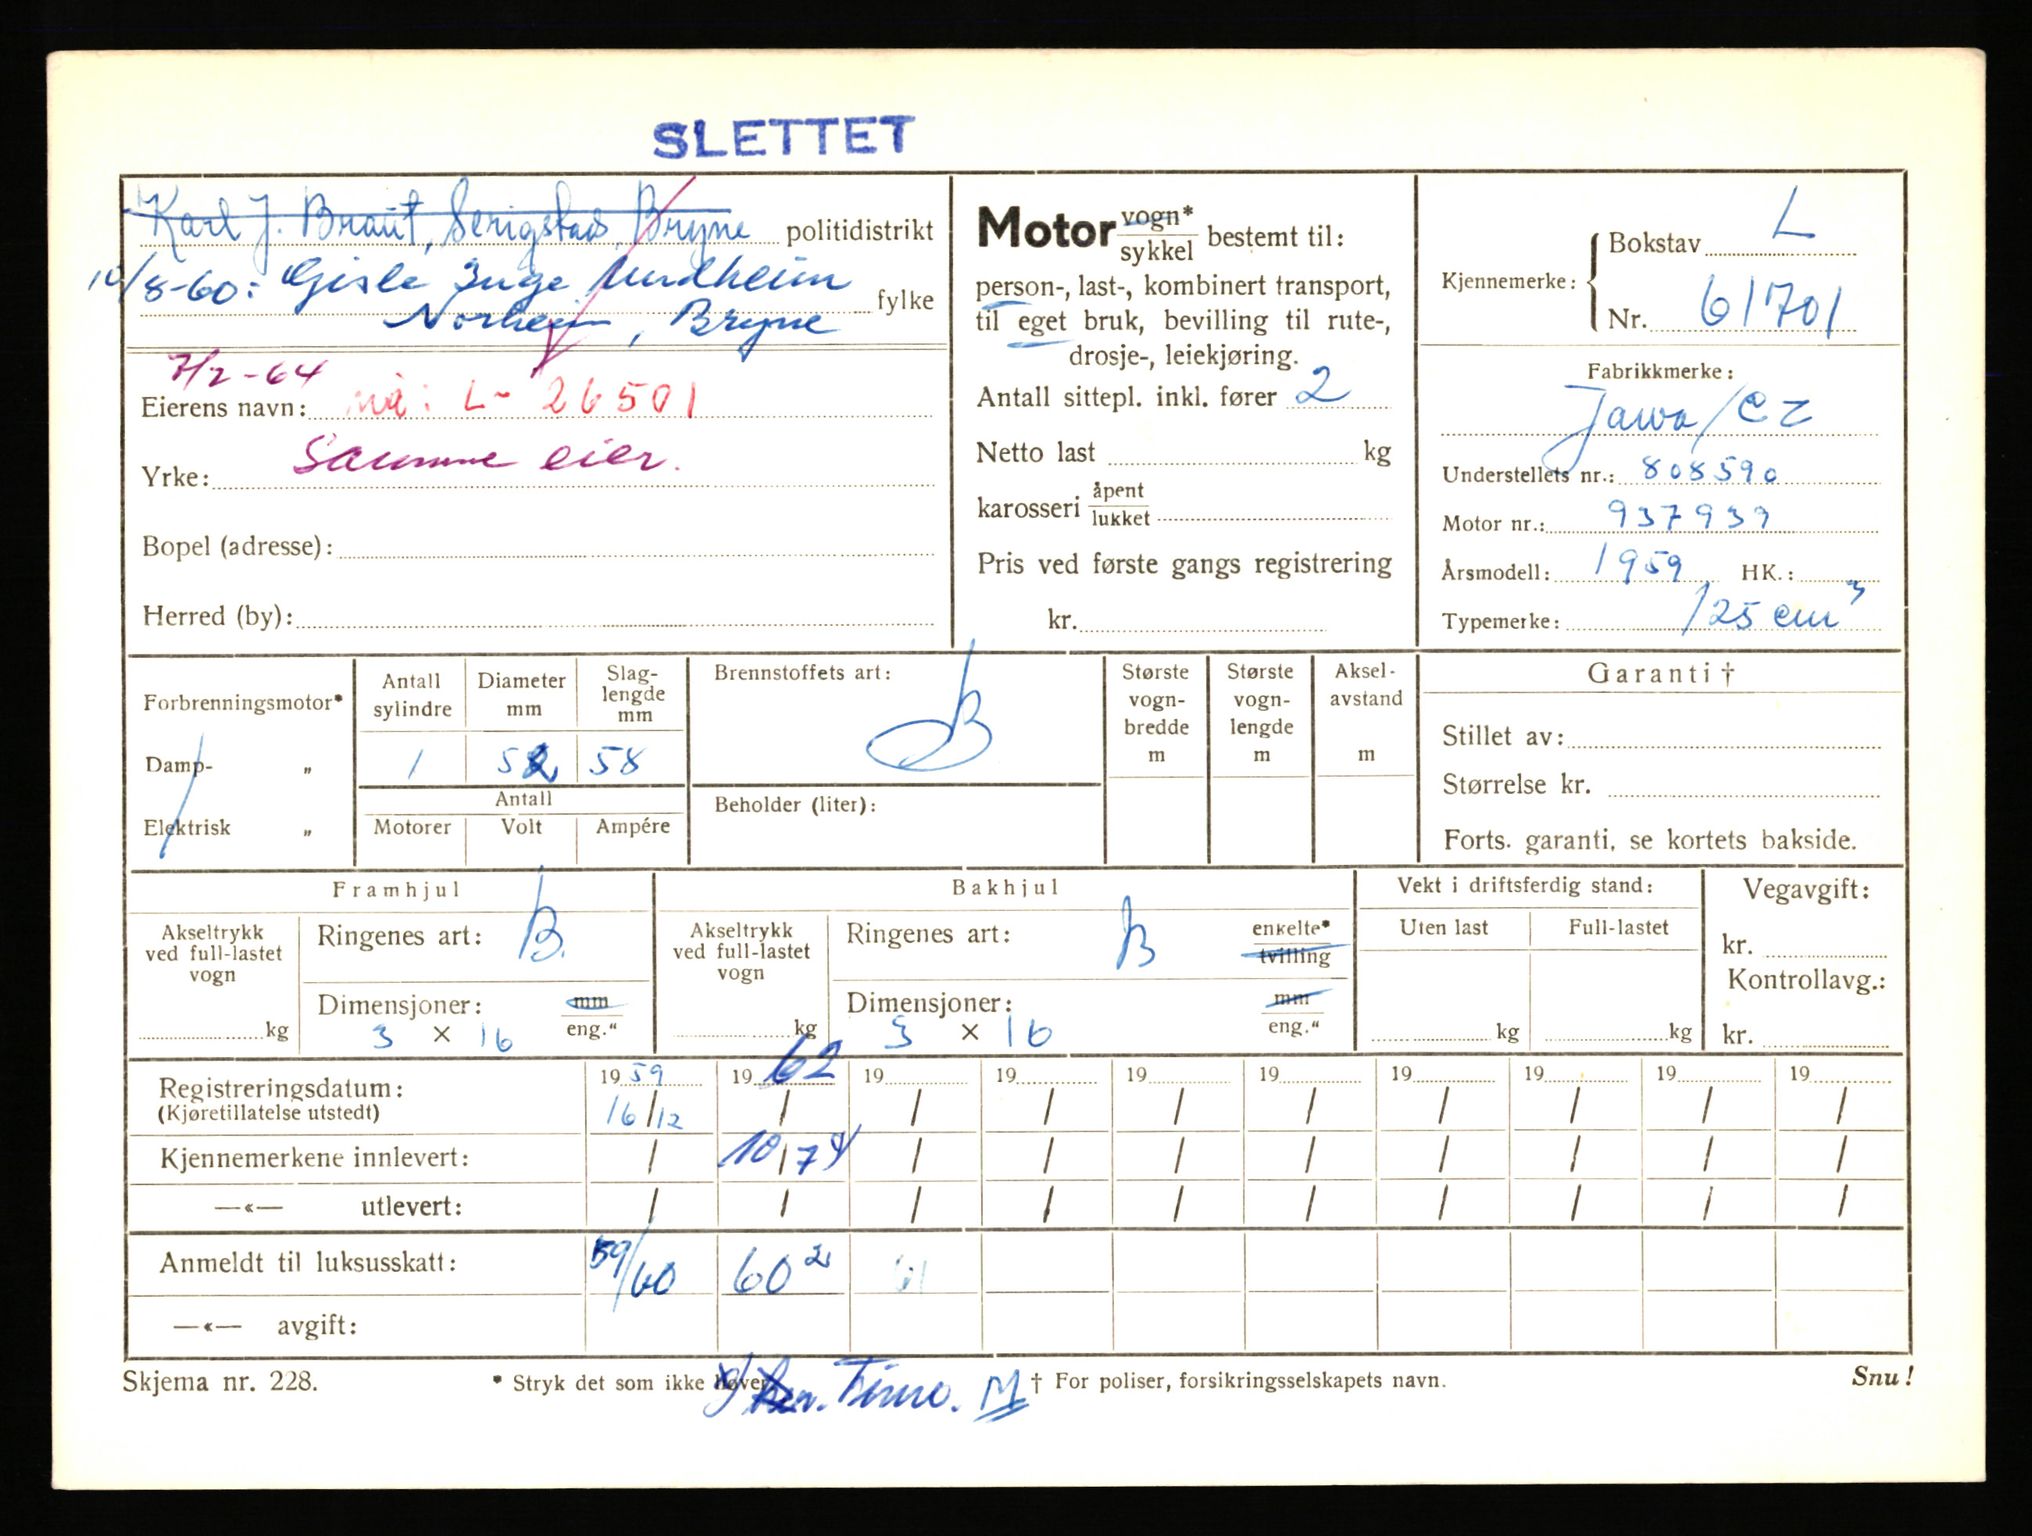 SLETTET
Karl J. Braut, Serigstad, Bryne politidistrikt
10/8-60: Gisle Inge Nordheim fylke
Norheim, Bryne
7/2-64
Eierens navn: nå: L- 26501
Samme eier.
Yrke:
Bopel (adresse):
Herred (by):
Motor vogn* / sykkel bestemt til:
person-, last-, kombinert transport,
til eget bruk, bevilling til rute-,
drosje-, leiekjøring.
Antall sittepl. inkl. fører 2
Netto last kg
karosseri åpent / lukket
Pris ved første gangs registrering
kr.
Kjennemerke: Bokstav L
Nr. 61701
Fabrikkmerke:
Jawa/CZ
Understellets nr.: 808590
Motor nr.: 937939
Årsmodell: 1959 HK.:
Typemerke: 125 cm³
Forbrenningsmotor*
Damp- „
Elektrisk „
Antall sylindre
Diameter mm
Slag-lengde mm
1 52 58
Antall
Motorer Volt Ampére
Brennstoffets art: B
Beholder (liter):
Største vogn-bredde m
Største vogn-lengde m
Aksel-avstand m
Garanti †
Stillet av:
Størrelse kr.
Forts. garanti, se kortets bakside.
Framhjul
Akseltrykk ved full-lastet vogn
kg
Ringenes art: B.
Dimensjoner: mm / eng.“
3 × 16
Bakhjul
Akseltrykk ved full-lastet vogn
kg
Ringenes art: B enkelte* / tvilling
Dimensjoner: mm / eng.“
3 × 16
Vekt i driftsferdig stand:
Uten last Full-lastet
kg kg
Vegavgift:
kr.
Kontrollavg.:
kr.
Registreringsdatum: 19 59 19 62 19 19 19 19 19 19 19 19
(Kjøretillatelse utstedt) 16/12 / / / / / / / / /
Kjennemerkene innlevert: / 10/7 / / / / / / / /
—«— utlevert: / / / / / / / / / /
Anmeldt til luksusskatt: 59/60 60 2 61
—«— avgift:
Skjema nr. 228. * Stryk det som ikke høver. † For poliser, forsikringsselskapets navn. Snu!
M